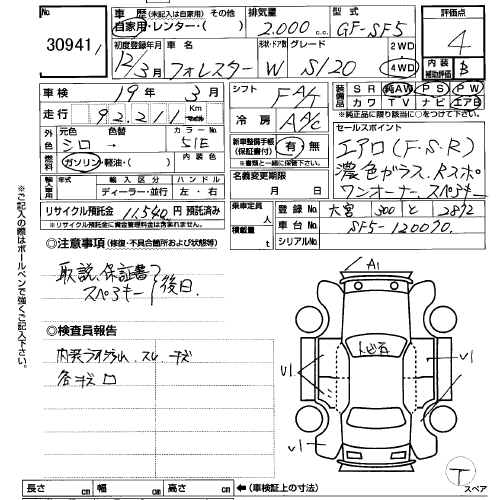 No.
30941
車歴 (未記入は自家用) その他
自家用・レンター・( )
排気量
2.000 c.c.
型式
GF-SF5
評価点
4
初度登録年月
12/3月
車名
フォレスター
形状・ドア数
W
グレード
S/20
2WD
4WD
内装
補助評価
B
車検
19年 3月
シフト
FA/T
装備品
SR 純AW PS PW
カワ TV ナビ エアB
※純正品に限り該当に○をつけて下さい
走行
92,211
Km
冷房
A/C
外色
元色
シロ
色替
カラーNo.
51E
内装色
新車整備手帳
(保証書付)
有・無
※書類と一緒に保管下さい。
セールスポイント
エアロ(F.S.R)
濃色ガラス、Rスポ
ワンオーナー、スペアキー
燃料
ガソリン・軽油・( )
輸入車
年式
輸入区分
ディーラー・並行
ハンドル
左・右
名義変更期限
月 日
リサイクル預託金
11,540
円預託済み
※リサイクル預託金に資金管理料金は含まれません。
乗車定員
人
積載量
t
登録No.
大宮 300 と 2872
車台No.
SF5-120070
シリアルNo.
◎注意事項 (修復・不具合箇所および状態等)
取説、保証書
スペアキー
後日
◎検査員報告
各キズ
(ご記入の際はボールペンで強くご記入下さい。)
A1
トビ石
U1
U1
U1
T
スペア
長さ cm 幅 cm 高さ cm ←(車検証上の寸法)